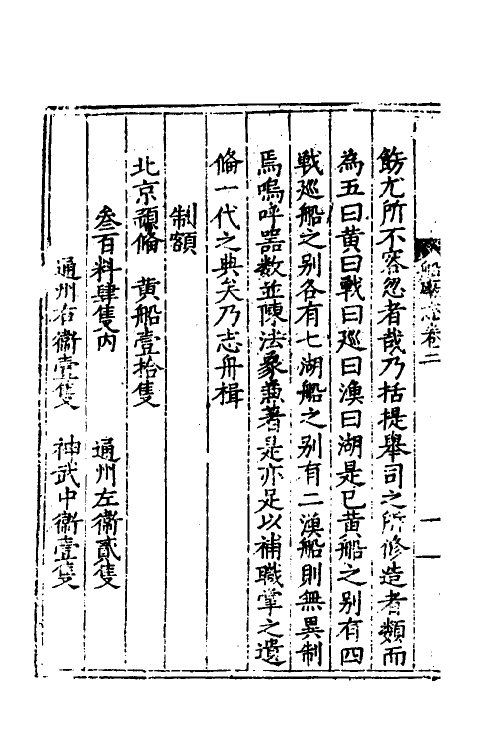 船政志卷二
一
飭尤所不容忽者哉乃括提舉司之所修造者類而
為五曰黄曰戰曰廵曰漁曰湖是已黄船之别有四
戰廵船之别各有七湖船之别有二漁船則無異制
焉嗚呼器数並陳法象兼著是亦足以補職掌之遺
俻一代之典矣乃志舟楫
制額
北京預俻 黄船壹拾隻
叁百料肆隻内 通州左衞貳隻
通州右衞壹隻 神武中衞壹隻